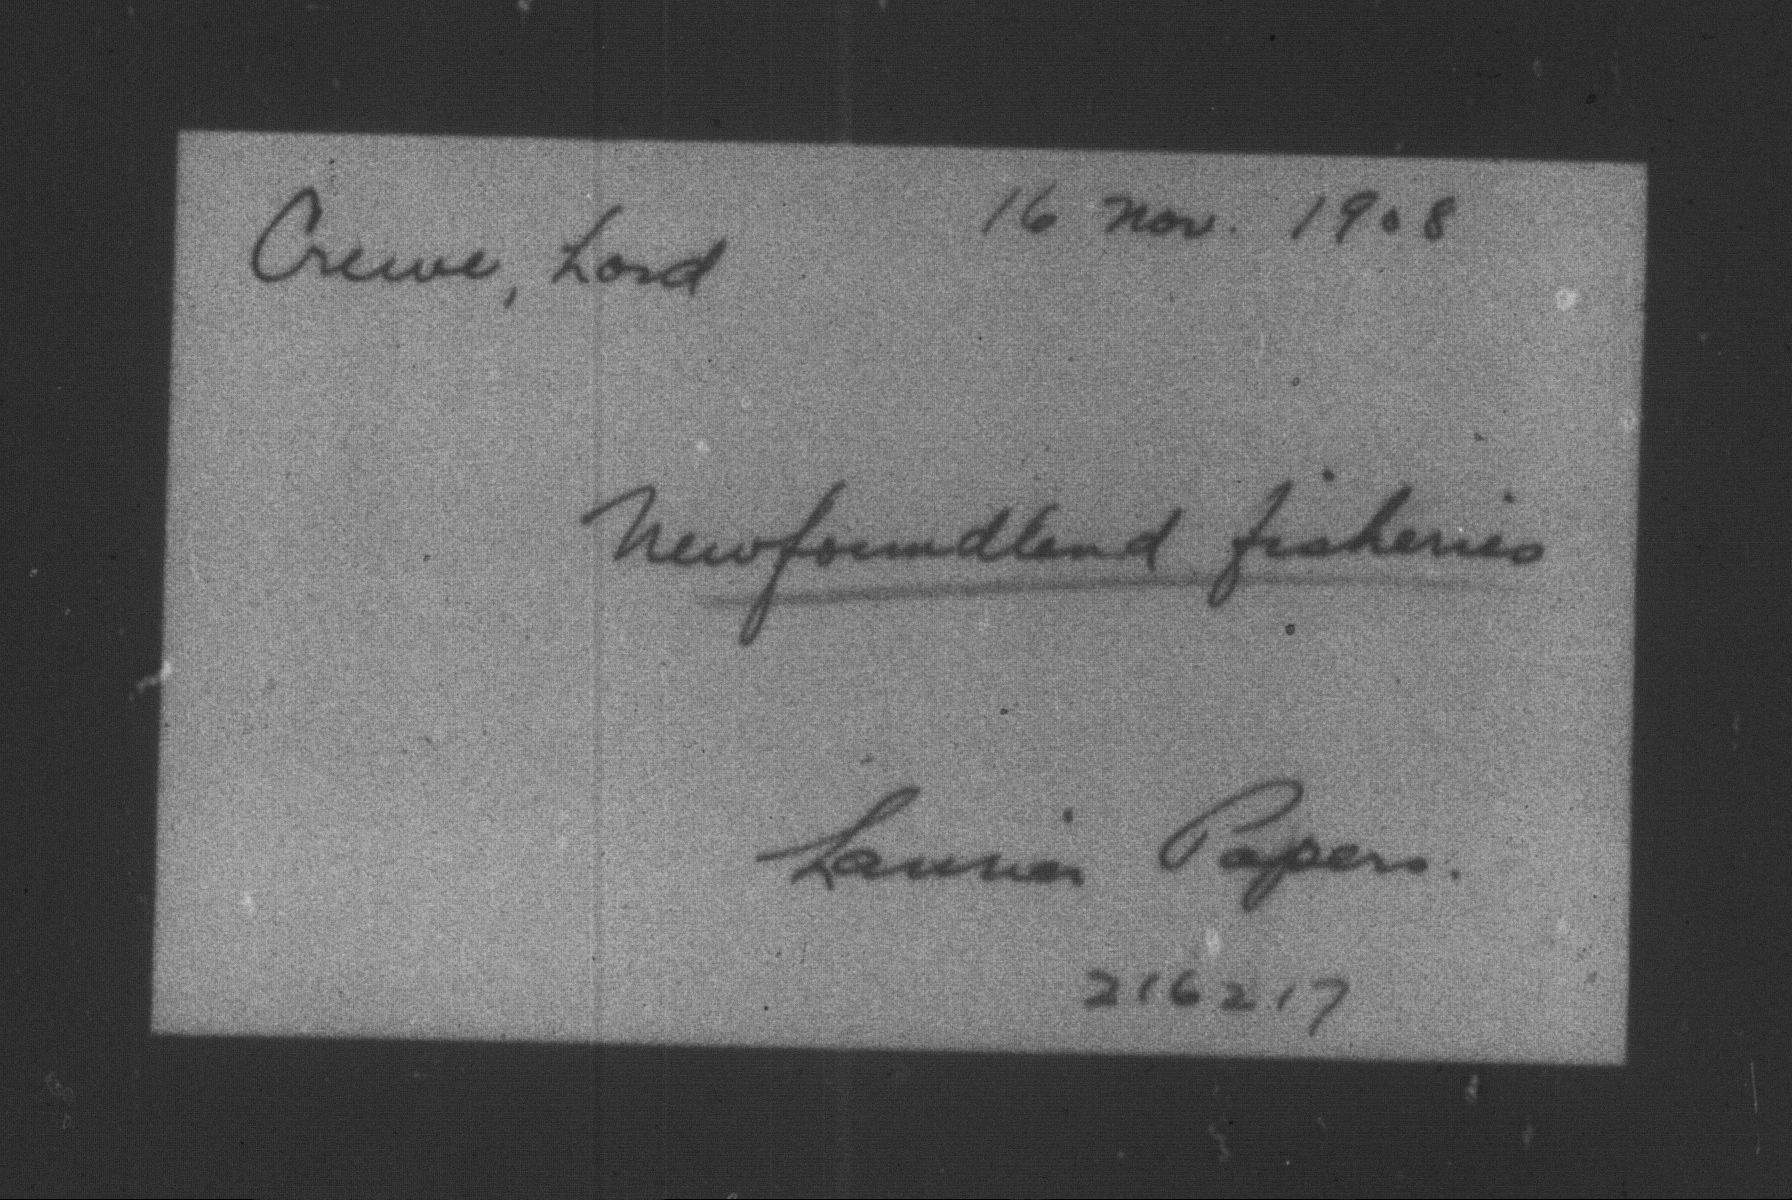 Crewe, Lord
16 Nov. 1908
Newfoundland fisheries
Laurier Papers.
216217